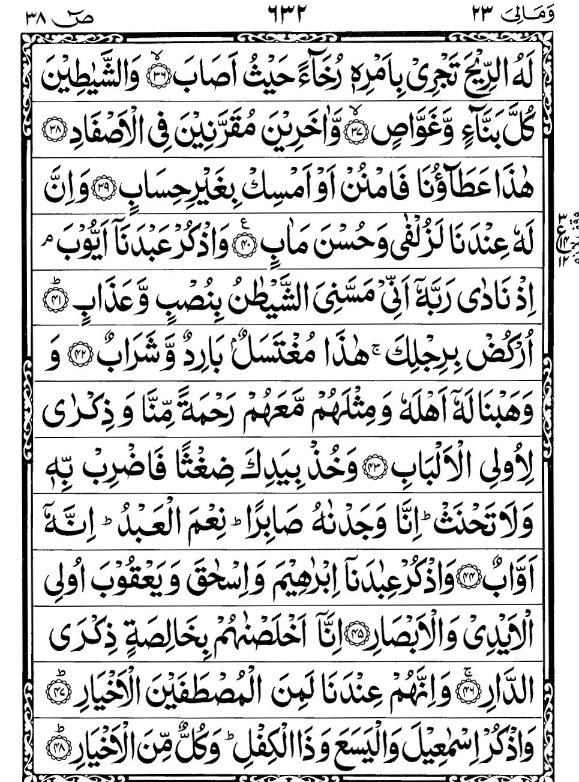 وَمَالِیَ ۲۳ ٦٣٢ صٓ ۳۸
لَهُ الرِّیْحَ تَجْرِیْ بِاَمْرِهٖ رُخَآءً حَیْثُ اَصَابَ ﴿۳۶﴾ۙ وَالشَّیٰطِیْنَ
كُلَّ بَنَّآءٍ وَّغَوَّاصٍ ﴿۳۷﴾ۙ وَّاٰخَرِیْنَ مُقَرَّنِیْنَ فِی الْاَصْفَادِ ﴿۳۸﴾
هٰذَا عَطَآؤُنَا فَامْنُنْ اَوْ اَمْسِكْ بِغَیْرِ حِسَابٍ ﴿۳۹﴾ وَاِنَّ
لَهٗ عِنْدَنَا لَزُلْفٰی وَحُسْنَ مَاٰبٍ ﴿۴۰﴾ع وَاذْكُرْ عَبْدَنَآ اَیُّوْبَ ۘ
اِذْ نَادٰی رَبَّهٗٓ اَنِّیْ مَسَّنِیَ الشَّیْطٰنُ بِنُصْبٍ وَّعَذَابٍ ﴿۴۱﴾ؕ
اُرْكُضْ بِرِجْلِكَ ۚ هٰذَا مُغْتَسَلٌۢ بَارِدٌ وَّشَرَابٌ ﴿۴۲﴾ وَ
وَهَبْنَا لَهٗٓ اَهْلَهٗ وَمِثْلَهُمْ مَّعَهُمْ رَحْمَةً مِّنَّا وَ ذِكْرٰی
لِاُولِی الْاَلْبَابِ ﴿۴۳﴾ وَخُذْ بِیَدِكَ ضِغْثًا فَاضْرِبْ بِّهٖ
وَلَا تَحْنَثْ ؕ اِنَّا وَجَدْنٰهُ صَابِرًا ؕ نِعْمَ الْعَبْدُ ؕ اِنَّهٗٓ
اَوَّابٌ ﴿۴۴﴾ وَاذْكُرْ عِبٰدَنَآ اِبْرٰهِیْمَ وَاِسْحٰقَ وَیَعْقُوْبَ اُولِی
الْاَیْدِیْ وَالْاَبْصَارِ ﴿۴۵﴾ اِنَّآ اَخْلَصْنٰهُمْ بِخَالِصَةٍ ذِكْرَی
الدَّارِ ﴿۴۶﴾ۚ وَاِنَّهُمْ عِنْدَنَا لَمِنَ الْمُصْطَفَیْنَ الْاَخْیَارِ ﴿۴۷﴾ؕ
وَاذْكُرْ اِسْمٰعِیْلَ وَالْیَسَعَ وَذَا الْكِفْلِ ؕ وَكُلٌّ مِّنَ الْاَخْیَارِ ﴿۴۸﴾ؕ